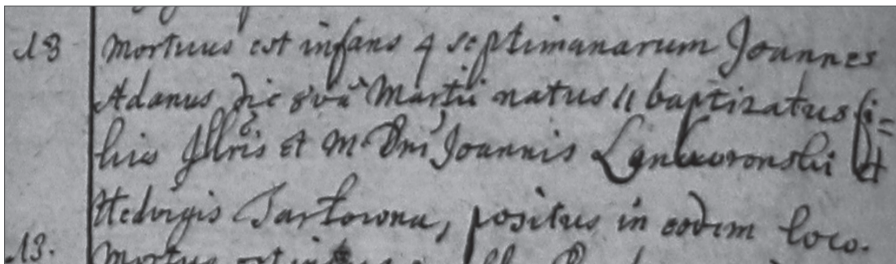 18 Mortuus est infans 4 septimanarum Joannes
Adamus die 8va Martii natus 11 baptizatus fi-
lius Illris et M. Dni Joannis Lanckoronskii et
Hedvigis Tarłowna, positus in eodem loco.
13. Mortuus est